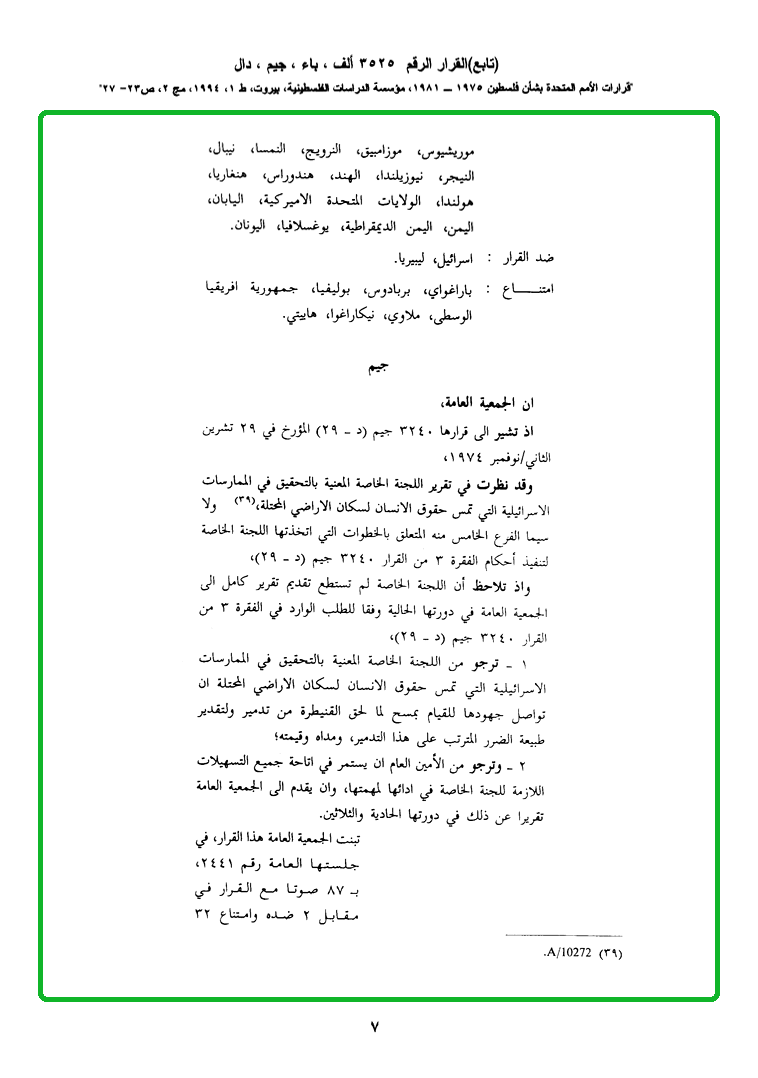 (تابع)القرار الرقم ٣٥٢٥ ألف ، باء ، جيم ، دال
"قرارات الأمم المتحدة بشأن فلسطين ١٩٧٥ – ١٩٨١، مؤسسة الدراسات الفلسطينية، بيروت، ط ١، ١٩٩٤، مج ٢، ص٢٣- ٢٧"
موريشيوس، موزامبيق، النرويج، النمسا، نيبال،
النيجر، نيوزيلندا، الهند، هندوراس، هنغاريا،
هولندا، الولايات المتحدة الاميركية، اليابان،
اليمن، اليمن الديمقراطية، يوغسلافيا، اليونان.
ضد القرار : اسرائيل، ليبيريا.
امتنـــــاع : باراغواي، بربادوس، بوليفيا، جمهورية افريقيا
الوسطى، ملاوي، نيكاراغوا، هاييتي.
جيم
ان الجمعية العامة،
اذ تشير الى قرارها ٣٢٤٠ جيم (د – ٢٩) المؤرخ في ٢٩ تشرين
الثاني/نوفمبر ١٩٧٤،
وقد نظرت في تقرير اللجنة الخاصة المعنية بالتحقيق في الممارسات
الاسرائيلية التي تمس حقوق الانسان لسكان الاراضي المحتلة،(٣٩) ولا
سيما الفرع الخامس منه المتعلق بالخطوات التي اتخذتها اللجنة الخاصة
لتنفيذ أحكام الفقرة ٣ من القرار ٣٢٤٠ جيم (د – ٢٩)،
واذ تلاحظ أن اللجنة الخاصة لم تستطع تقديم تقرير كامل الى
الجمعية العامة في دورتها الحالية وفقا للطلب الوارد في الفقرة ٣ من
القرار ٣٢٤٠ جيم (د – ٢٩)،
١ – ترجو من اللجنة الخاصة المعنية بالتحقيق في الممارسات
الاسرائيلية التي تمس حقوق الانسان لسكان الاراضي المحتلة ان
تواصل جهودها للقيام بمسح لما لحق القنيطرة من تدمير ولتقدير
طبيعة الضرر المترتب على هذا التدمير، ومداه وقيمته؛
٢ – وترجو من الأمين العام ان يستمر في اتاحة جميع التسهيلات
اللازمة للجنة الخاصة في ادائها لمهمتها، وان يقدم الى الجمعية العامة
تقريرا عن ذلك في دورتها الحادية والثلاثين.
تبنت الجمعية العامة هذا القرار، في
جلستها العامة رقم ٢٤٤١،
بـ ٨٧ صوتا مع القرار في
مقابل ٢ ضده وامتناع ٣٢
(٣٩) A/10272.
٧